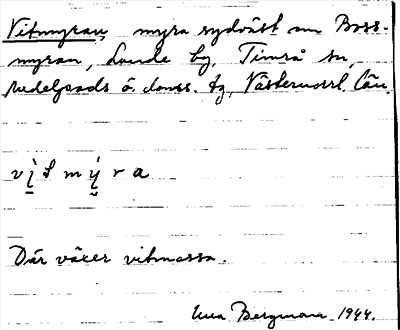 Vitmyran, myra sydväst om Boss-
myran, Lunde by, Timrå sn,
Medelpads ö. doms. tg, Västernorrl. län.
vìtmýra
Där växer vitmossa.
Bergman 1944.